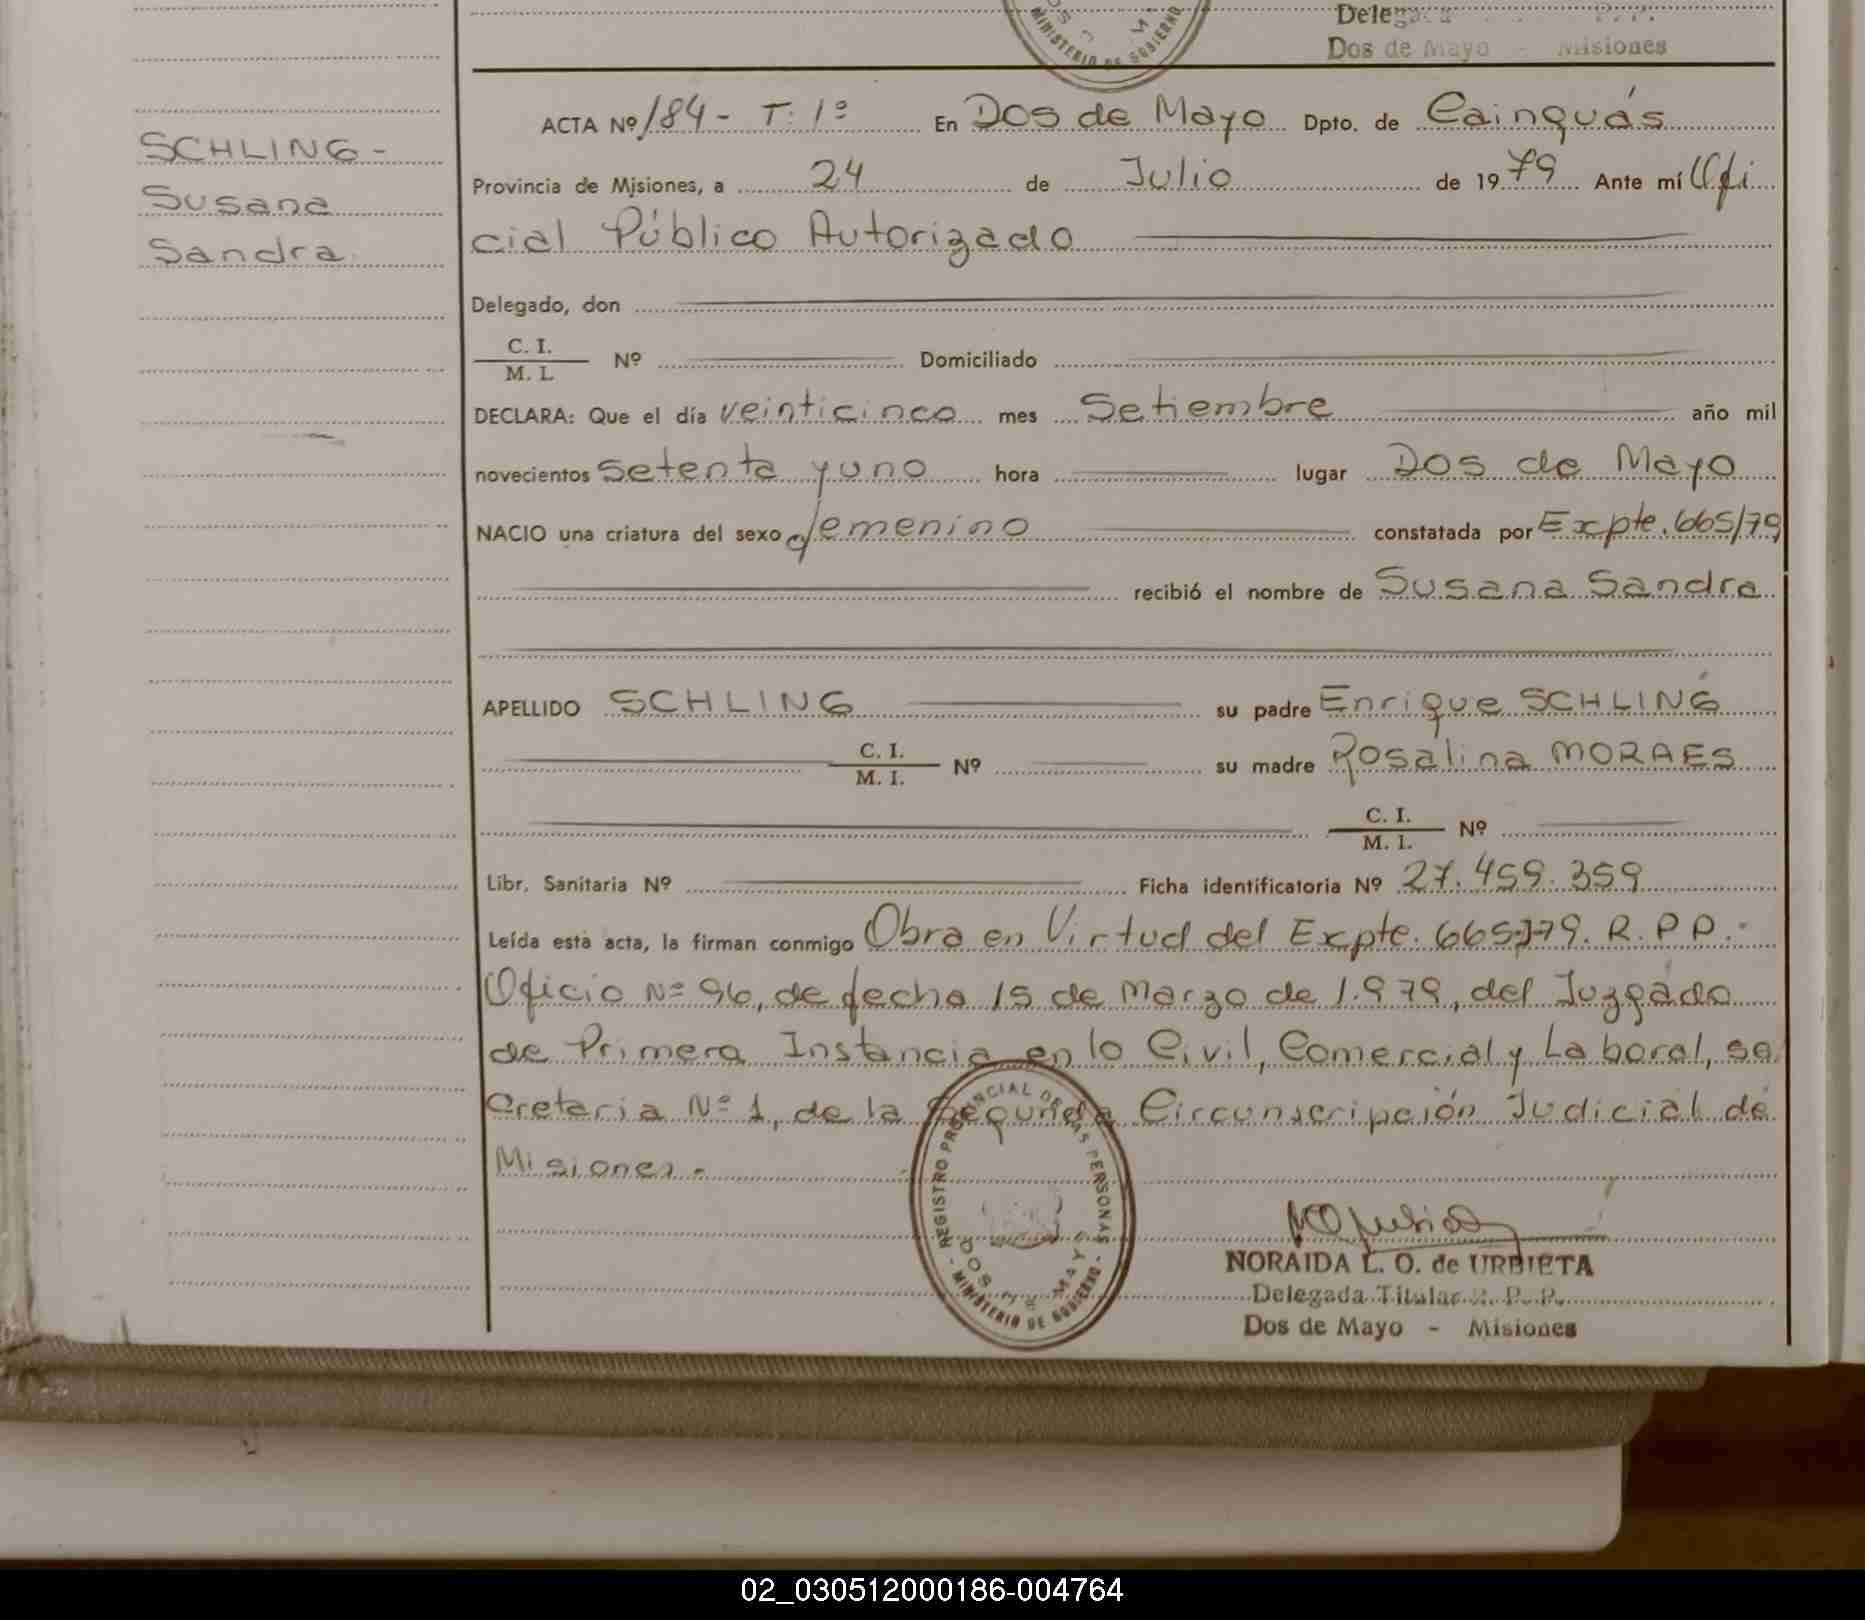 MINISTERIO DE GOBIERNO
Dos de Mayo - Misiones
SCHLING -
Susana
Sandra
ACTA Nº 184 - T: 1º En Dos de Mayo Dpto. de Cainguás
Provincia de Misiones, a 24 de Julio de 1979 Ante mí Ofi
cial Público Autorizado
Delegado, don
C. I.
M. I. Nº Domiciliado
DECLARA: Que el día veinticinco mes Setiembre año mil
novecientos setenta y uno hora lugar Dos de Mayo
NACIO una criatura del sexo femenino constatada por Expte. 665/79
recibió el nombre de Susana Sandra
APELLIDO SCHLING su padre Enrique SCHLING
C. I.
M. I. Nº su madre Rosalina MORAES
C. I.
M. I. Nº
Libr. Sanitaria Nº Ficha identificatoria Nº 27.459.359
Leída esta acta, la firman conmigo Obra en Virtud del Expte. 665/79. R.P.P.-
Oficio Nº 96, de fecha 15 de Marzo de 1.979, del Juzgado
de Primera Instancia en lo Civil, Comercial y Laboral, se
cretaria Nº 1, de la Segunda Circunscripción Judicial de
Misiones.-
REGISTRO PROVINCIAL DE LAS PERSONAS
DOS DE MAYO
- MINISTERIO DE GOBIERNO -
NORAIDA L. O. de URBIETA
Delegada Titular R. P. P.
Dos de Mayo - Misiones
02_030512000186-004764